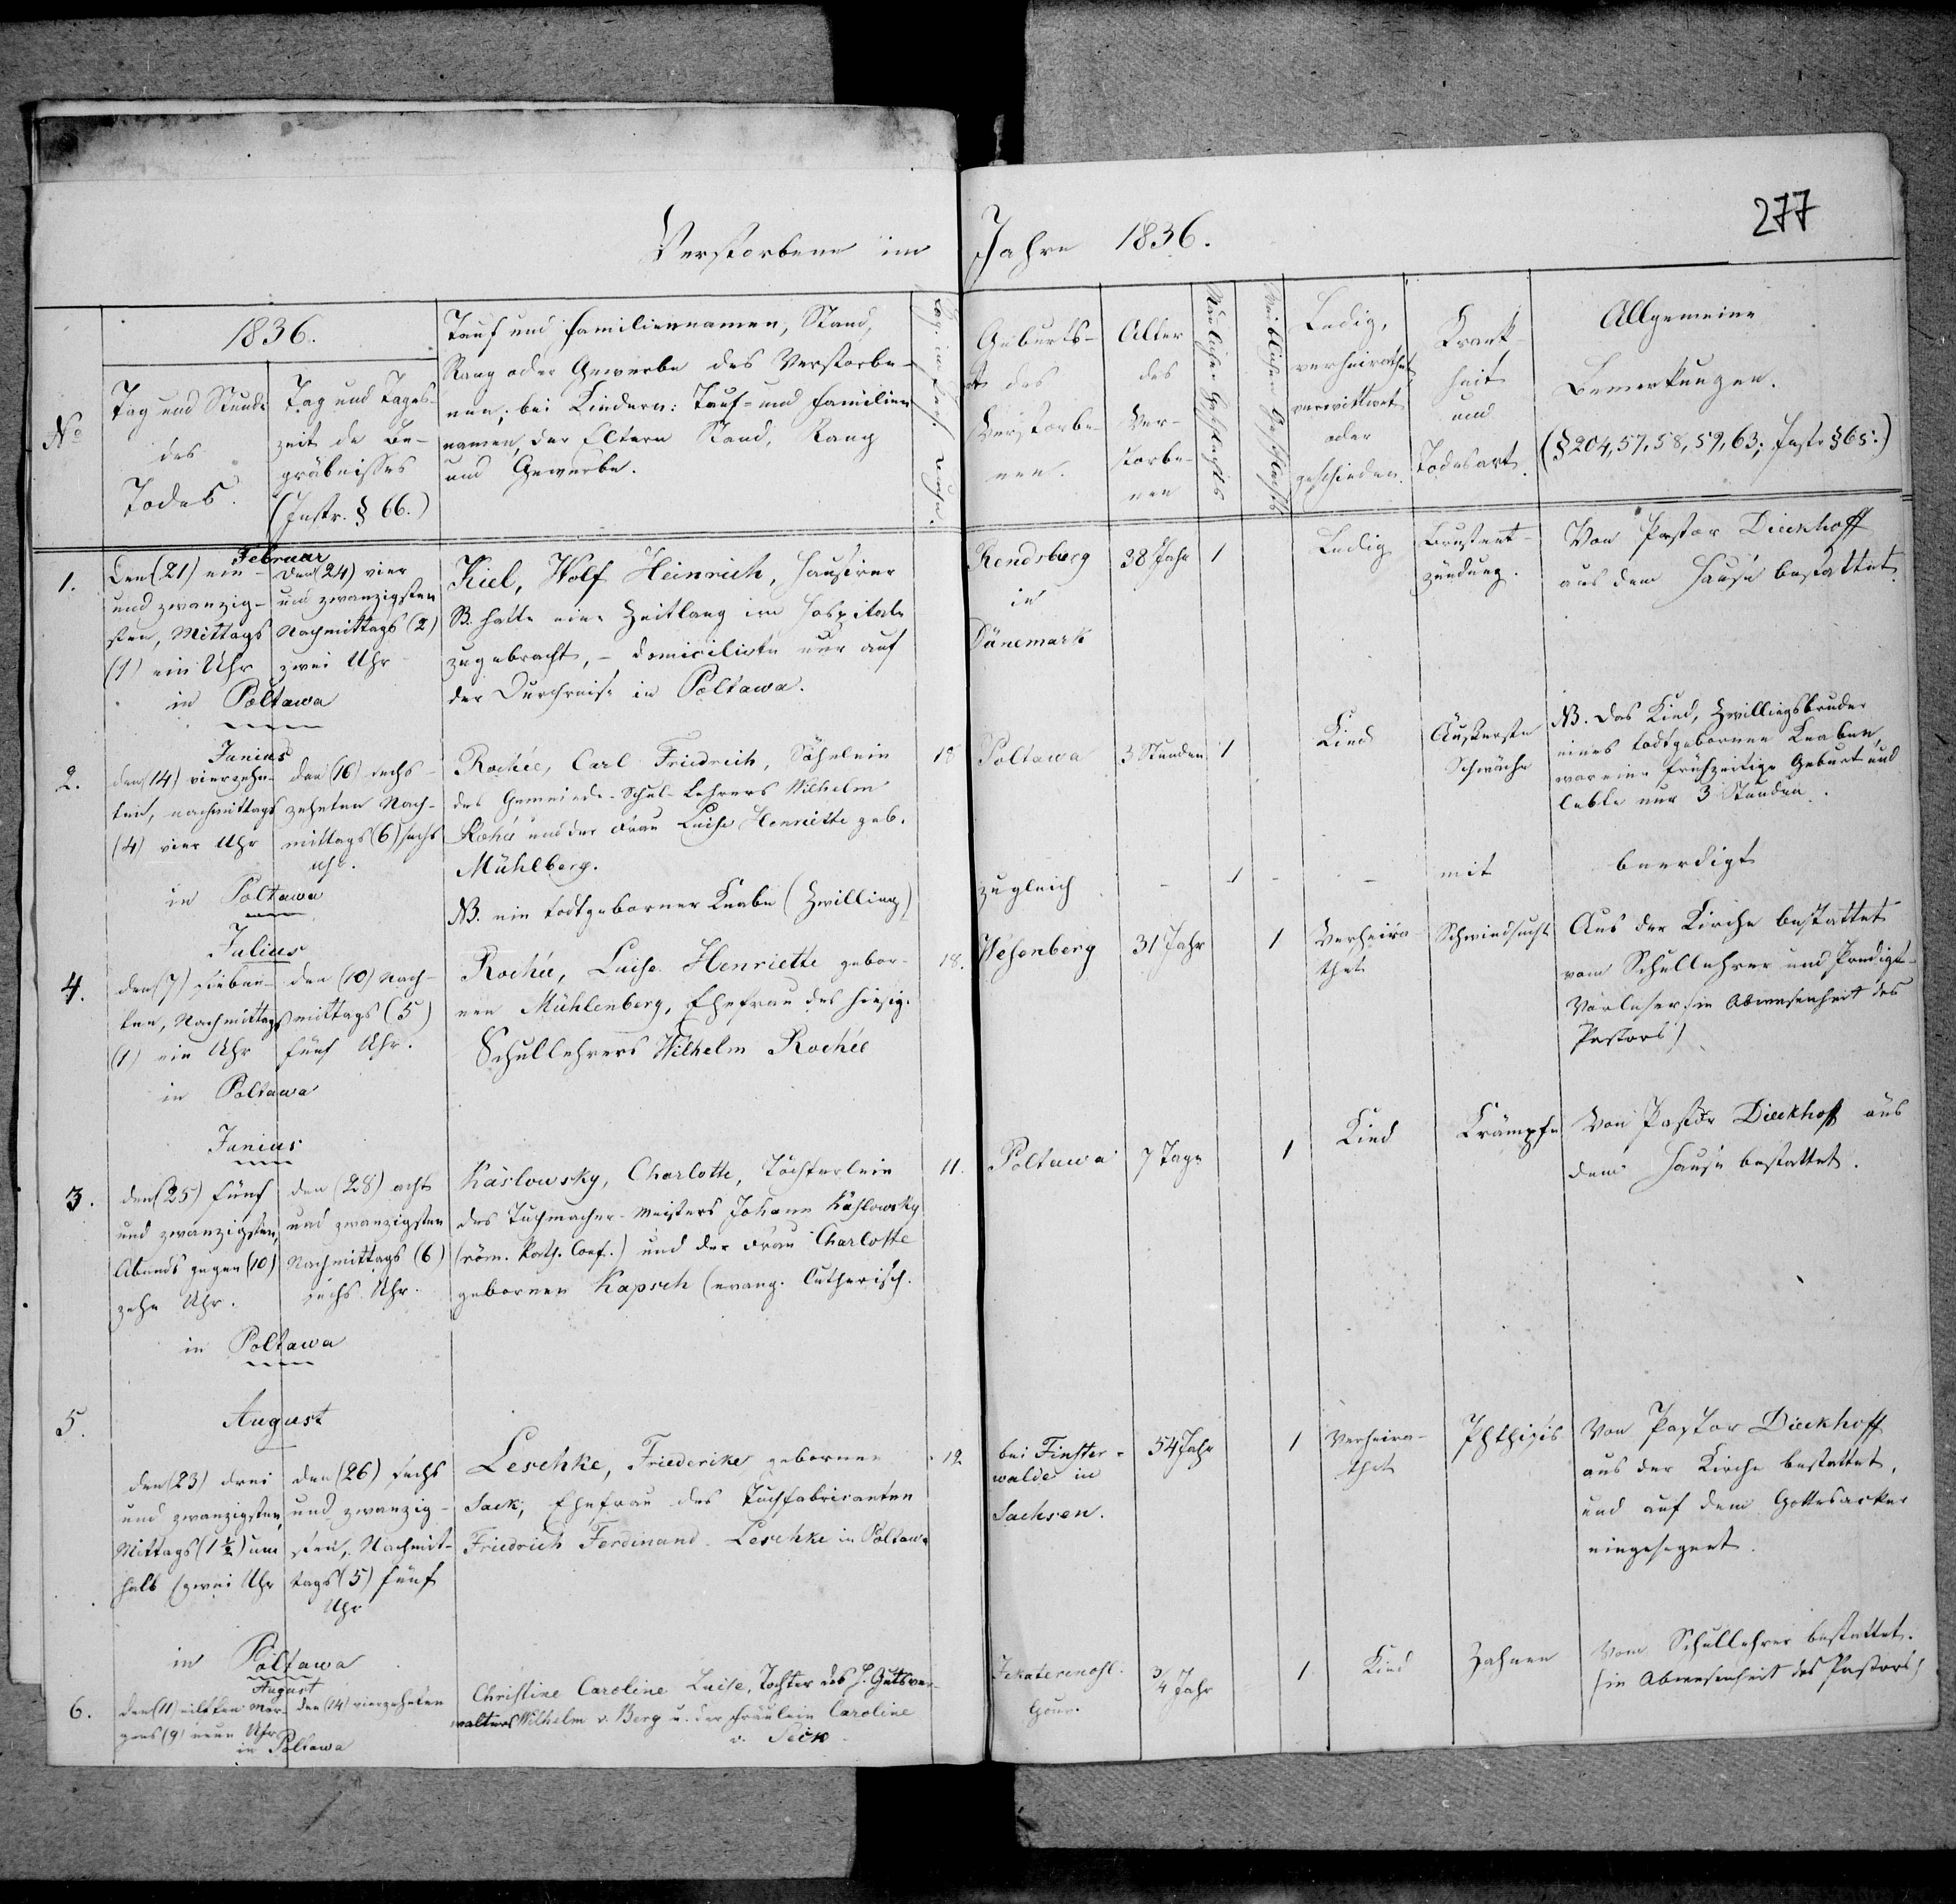 277
Verstorbene im Jahre 1836.
No
1836.
Tag und Stunde
des
Todes.
Tag und Tages-
zeit de Be-
gräbnisses
(Instr. § 66.)
Tauf und Familiennamen, Stand,
Rang oder Gewerbe des Verstorbe-
nen; bei Kindern: Tauf- und Familien
namen, der Eltern Stand, Rang
und Gewerbe.
Geburts-
ort des
Verstorbe-
nen.
Alter
des
Ver-
storbe-
nen
Männlichen Geschlechts
Weiblichen Geschlechts
Ledig,
verheirathet
verwittwet
oder
geschieden.
Krank-
heit
und
Todesart.
Allgemeine
Bemerkungen.
(§ 204, 57, 58, 59, 63; Instr § 65.)
1.
Februar
Den (21) ein-
und zwanzig-
sten, Mittags
(1) ein Uhr
den (24) vier
und zwanzigsten
Nachmittags (2)
zwei Uhr
in Poltawa
Kiel, Wolf Heinrich, Hausirer
B. hatte eine Zeitlang im Hospitale
zugebracht, – domicilirte nur auf
der Durchreise in Poltawa.
Rendsburg
in
Dänemark
38 Jahr
1
Ledig
Brustent-
zündung.
Von Pastor Dieckhoff
aus dem Hause bestattet.
2.
Junius
den (14) vierzehn-
ten, nachmittags
(4) vier Uhr
den (16) sechs-
zehnten Nach-
mittags (6) sechs
Uhr.
in Poltawa
Rochée, Carl Friedrich, Söhnlein
des Gemeinde-Schul-Lehrers Wilhelm
Rochée und der Frau Luise Henriette geb.
Mühlberg.
NB. ein todtgeborner Knabe (Zwilling)
18
Poltawa
3 Stunden
1
Kind
Äußerste
Schwäche
NB. Das Kind, Zwillingsbruder
eines todtgebornen Knaben,
war eine frühzeitige Geburt und
lebte nur 3 Stunden.
zugleich - 1 - - mit beerdigt
4.
Julius
den (7) sieben-
ten, Nachmittags
(1) ein Uhr
den (10) Nach-
mittags (5)
fünf Uhr.
in Poltawa
Rochée, Luise Henriette gebor-
nen Mühlenberg, Ehefrau des hiesig.
Schullehrers Wilhelm Rochée
18.
Wesenberg
31 Jahr
1
Verheira-
thet
Schwindsucht
Aus der Kirche bestattet
vom Schullehrer und Predigt-
Vorleser (in Abwesenheit des
Pastors)
3.
Junius
den (25) fünf
und zwanzigsten,
Abends gegen (10)
zehn Uhr.
den (28) acht
und zwanzigsten
Nachmittags (6)
sechs Uhr.
in Poltawa
Käslowsky, Charlotte, Töchterlein
des Tuchmacher-Meisters Johann Käslowsky
(röm. kath. Conf.) und der Frau Charlotte
gebornen Kapsch (evang. lutherisch.
11.
Poltawa
7 Tage
1
Kind
Krämpfe
Von Pastor Dieckhoff aus
dem Hause bestattet.
5.
August
den (23) drei
und zwanzigsten,
Mittags (1½) um
halb zwei Uhr
den (26) sechs
und zwanzig-
sten, Nachmit-
tags (5) fünf
Uhr
in Poltawa
Leschke, Friederike gebornen
Sack, Ehefrau des Tuchfabricanten
Friedrich Ferdinand Leschke in Poltawa
12
bei Finster-
walde in
Sachsen.
54 Jahr
1
Verheira-
thet
Phthisis
Von Pastor Dieckhoff
aus der Kirche bestattet,
und auf dem Gottesacker
eingesegnet.
6.
August
den (11) eilften Mor-
gens (9) neun Uhr
den (14) vierzehnten
in Poltawa
Christine Caroline Luise, Tochter des H. Gutsver-
walters Wilhelm v. Berg u. der Fräulein Caroline
v. Seck
Jekaterinosl.
Gouv.
¾ Jahr
1
Kind
Zahnen
Vom Schullehrer bestattet.
(in Abwesenheit des Pastors)